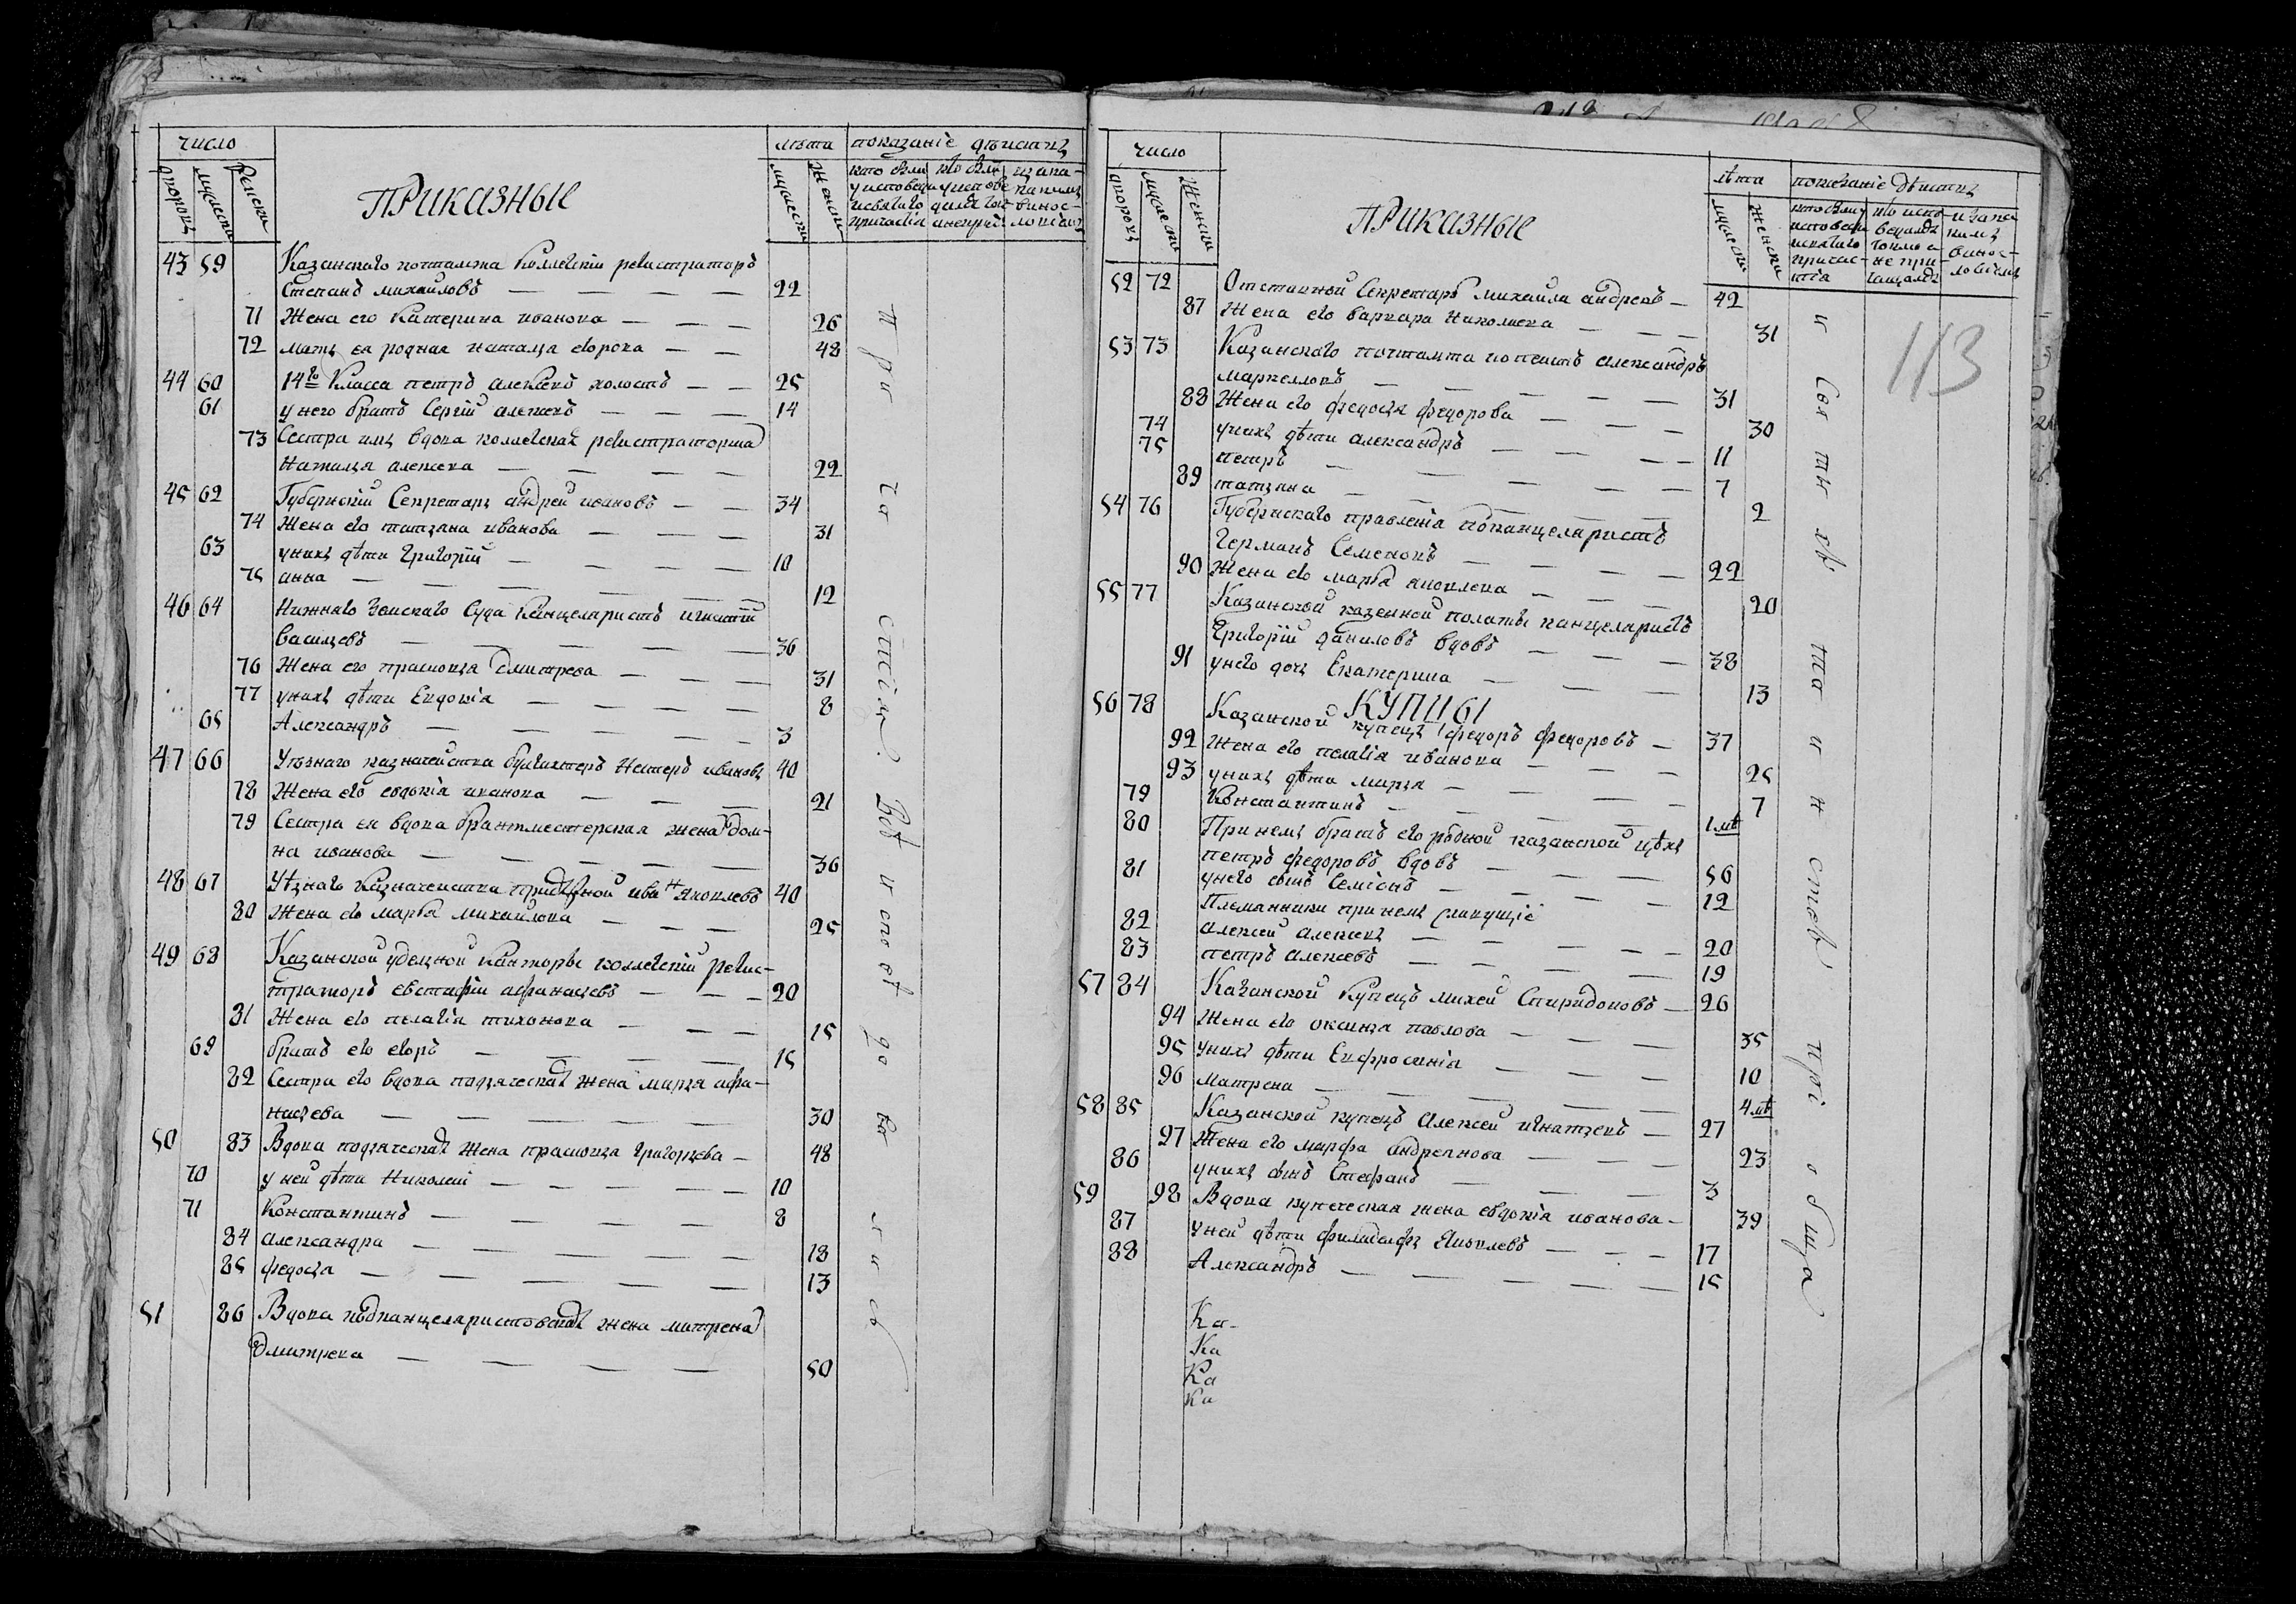 число
дворовъ
мужеска
женска
ПРИКАЗНЫЕ
лѣта
мужеска
женска
показаніе дѣистиц
43 59 Казанскаго почтамта Коллежскiи регистраторъ
Степанъ михаиловъ — — — — 22
71 Жена его Катерина иванова — — — 26
72 мать ея родная наталья егорова — — 48
44 60 14го Класса петръ алексѣевъ холостъ — — 25
61 у него братъ Сергiй алексѣевъ — — — 14
73 Сестра имъ вдова коллежская регистраторша
Наталья алексѣева — — — — 22
45 62 Губернскiй Секретарь андрей ивановъ — — 34
74 Жена его татьяна иванова — — — 31
63 у нихъ дѣти Григорiй — — — — 10
75 анна — — — — — 12
46 64 Нижнаго Земскаго Суда Канцеляристъ игнатiй
васильевъ — — — — 36
76 Жена его прасковья дмитрева — — — 31
77 у нихъ дѣти Евдокiя — — — — 8
65 Александръ — — — — 3
47 66 Уѣзнаго казначейства бухгалтеръ Нестеръ ивановъ 40
78 Жена его евдокiя иванова — — — 21
79 Сестра ея вдова брантместерская жена дом-
на иванова — — — — — 36
48 67 Уѣзнаго Казначейства присяжной иванъ Яковлевъ 40
80 Жена его марѳа михаилова — — — 25
49 68 Казанской удѣльной Канторы коллежскiй регис-
траторъ евстафiи афанасьевъ — — — 20
81 Жена его пелагiя тихонова — — — 15
69 братъ его егоръ — — — — 15
82 Сестра его вдова подъяческая жена марья афа-
насьева — — — — — 30
50 83 Вдова подъяческая жена прасковья Григорьева — 48
70 у ней дѣти Николай — — — — 10
71 Константинъ — — — — 8
84 александра — — — — 18
85 федосья — — — — 13
51 86 Вдова подканцеляристовская жена матрена
дмитрева — — — — 50
при
частiи.
Всѣ
исповѣ
дова
лись
число
дворовъ
мужеска
женска
ПРИКАЗНЫЕ
лѣта
мужеска
женска
показанiе дѣистиц
113
52 72 Отставной Секретарь михаила андреевъ — 42
87 Жена его варвара николаева — — — 31
53 73 Казанскаго почтамта копеистъ александръ
маркелловъ — — — — 31
88 Жена его федосья федорова — — — 30
74 у нихъ дѣти александръ — — — 11
75 петръ — — — — — 7
89 татьяна — — — — — 2
54 76 Губернскаго правленiя подканцеляристъ
Германъ Семеновъ — — — — 22
90 Жена его марѳа яковлева — — — 20
55 77 Казанской казенной палаты канцеляристъ
Григорiй даниловъ вдовъ — — — 38
91 у него дочь Екатерина — — — 13
КУПЦЫ
56 78 Казанской купецъ федоръ федоровъ — 37
92 Жена его пелагiя иванова — — — 25
93 у нихъ дѣти марья — — — — 7
79 Константинъ — — — — 1 лѣт
80 При немъ братъ его родной казанской цѣхъ
петръ федоровъ вдовъ — — — — 56
81 у него сынъ Семiонъ — — — — 12
Племянники при немъ живущiе
82 алексѣй алексѣевъ — — — — 20
83 петръ алексѣевъ — — — — 19
57 84 Казанской Купецъ михей Спиридоновъ — 26
94 Жена его оксинья павлова — — — 35
95 у нихъ дѣти Евфросинiя — — — 10
96 Матрена — — — — — 4 лѣт
58 85 Казанской купецъ Алексѣй игнатьевъ — 27
97 Жена его марфа андреянова — — — 23
86 у нихъ сынъ Стефанъ — — — 3
59 98 Вдова купеческая жена евдокiя иванова — 39
87 у ней дѣти филиппъ Яковлевъ — — — 17
88 Александръ — — — — — 15
Ка-
Ка
Ка
Ка
и Свя тыхъ
та и н ствъ
прi о бща